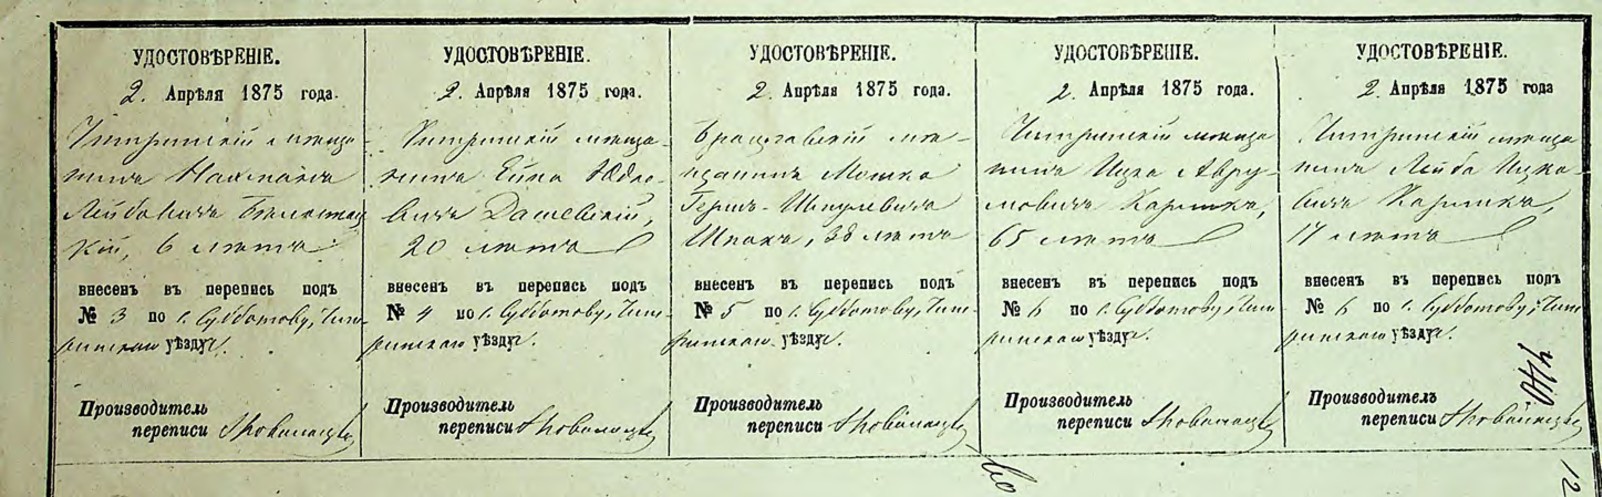 УДОСТОВѢРЕНІЕ.
2. Апрѣля 1875 года.
Чигиринскій мѣща-
нинъ
Лейбовичъ
кій, 6 лѣтъ
внесенъ въ перепись подъ
№ 3 по с. Субботову, Чиги-
ринскаго уѣзду.
Производитель
переписи
УДОСТОВѢРЕНІЕ.
2. Апрѣля 1875 года.
Чигиринскій мѣща-
нинъ Юдко-
вичъ Дашевскій,
20 лѣтъ
внесенъ въ перепись подъ
№ 4 по с. Субботову, Чиги-
ринскаго уѣзду.
Производитель
переписи
УДОСТОВѢРЕНІЕ.
2. Апрѣля 1875 года.
Брацлавскій мѣ-
щанинъ Мошко
Гершъ-Шмулевичъ
Шпакъ, 38 лѣтъ
внесенъ въ перепись подъ
№ 5 по с. Субботову, Чиги-
ринскаго уѣзду.
Производитель
переписи
УДОСТОВѢРЕНІЕ.
2. Апрѣля 1875 года.
Чигиринскій мѣща-
нинъ Ицко Авру-
мовичъ
65 лѣтъ
внесенъ въ перепись подъ
№ 6 по с. Субботову, Чиги-
ринскаго уѣзду.
Производитель
переписи
УДОСТОВѢРЕНІЕ.
2. Апрѣля 1875 года
Чигиринскій мѣща-
нинъ Лейба Ицко-
вичъ
17 лѣтъ
внесенъ въ перепись подъ
№ 6 по с. Субботову, Чиги-
ринскаго уѣзду.
Производитель
переписи
60
12